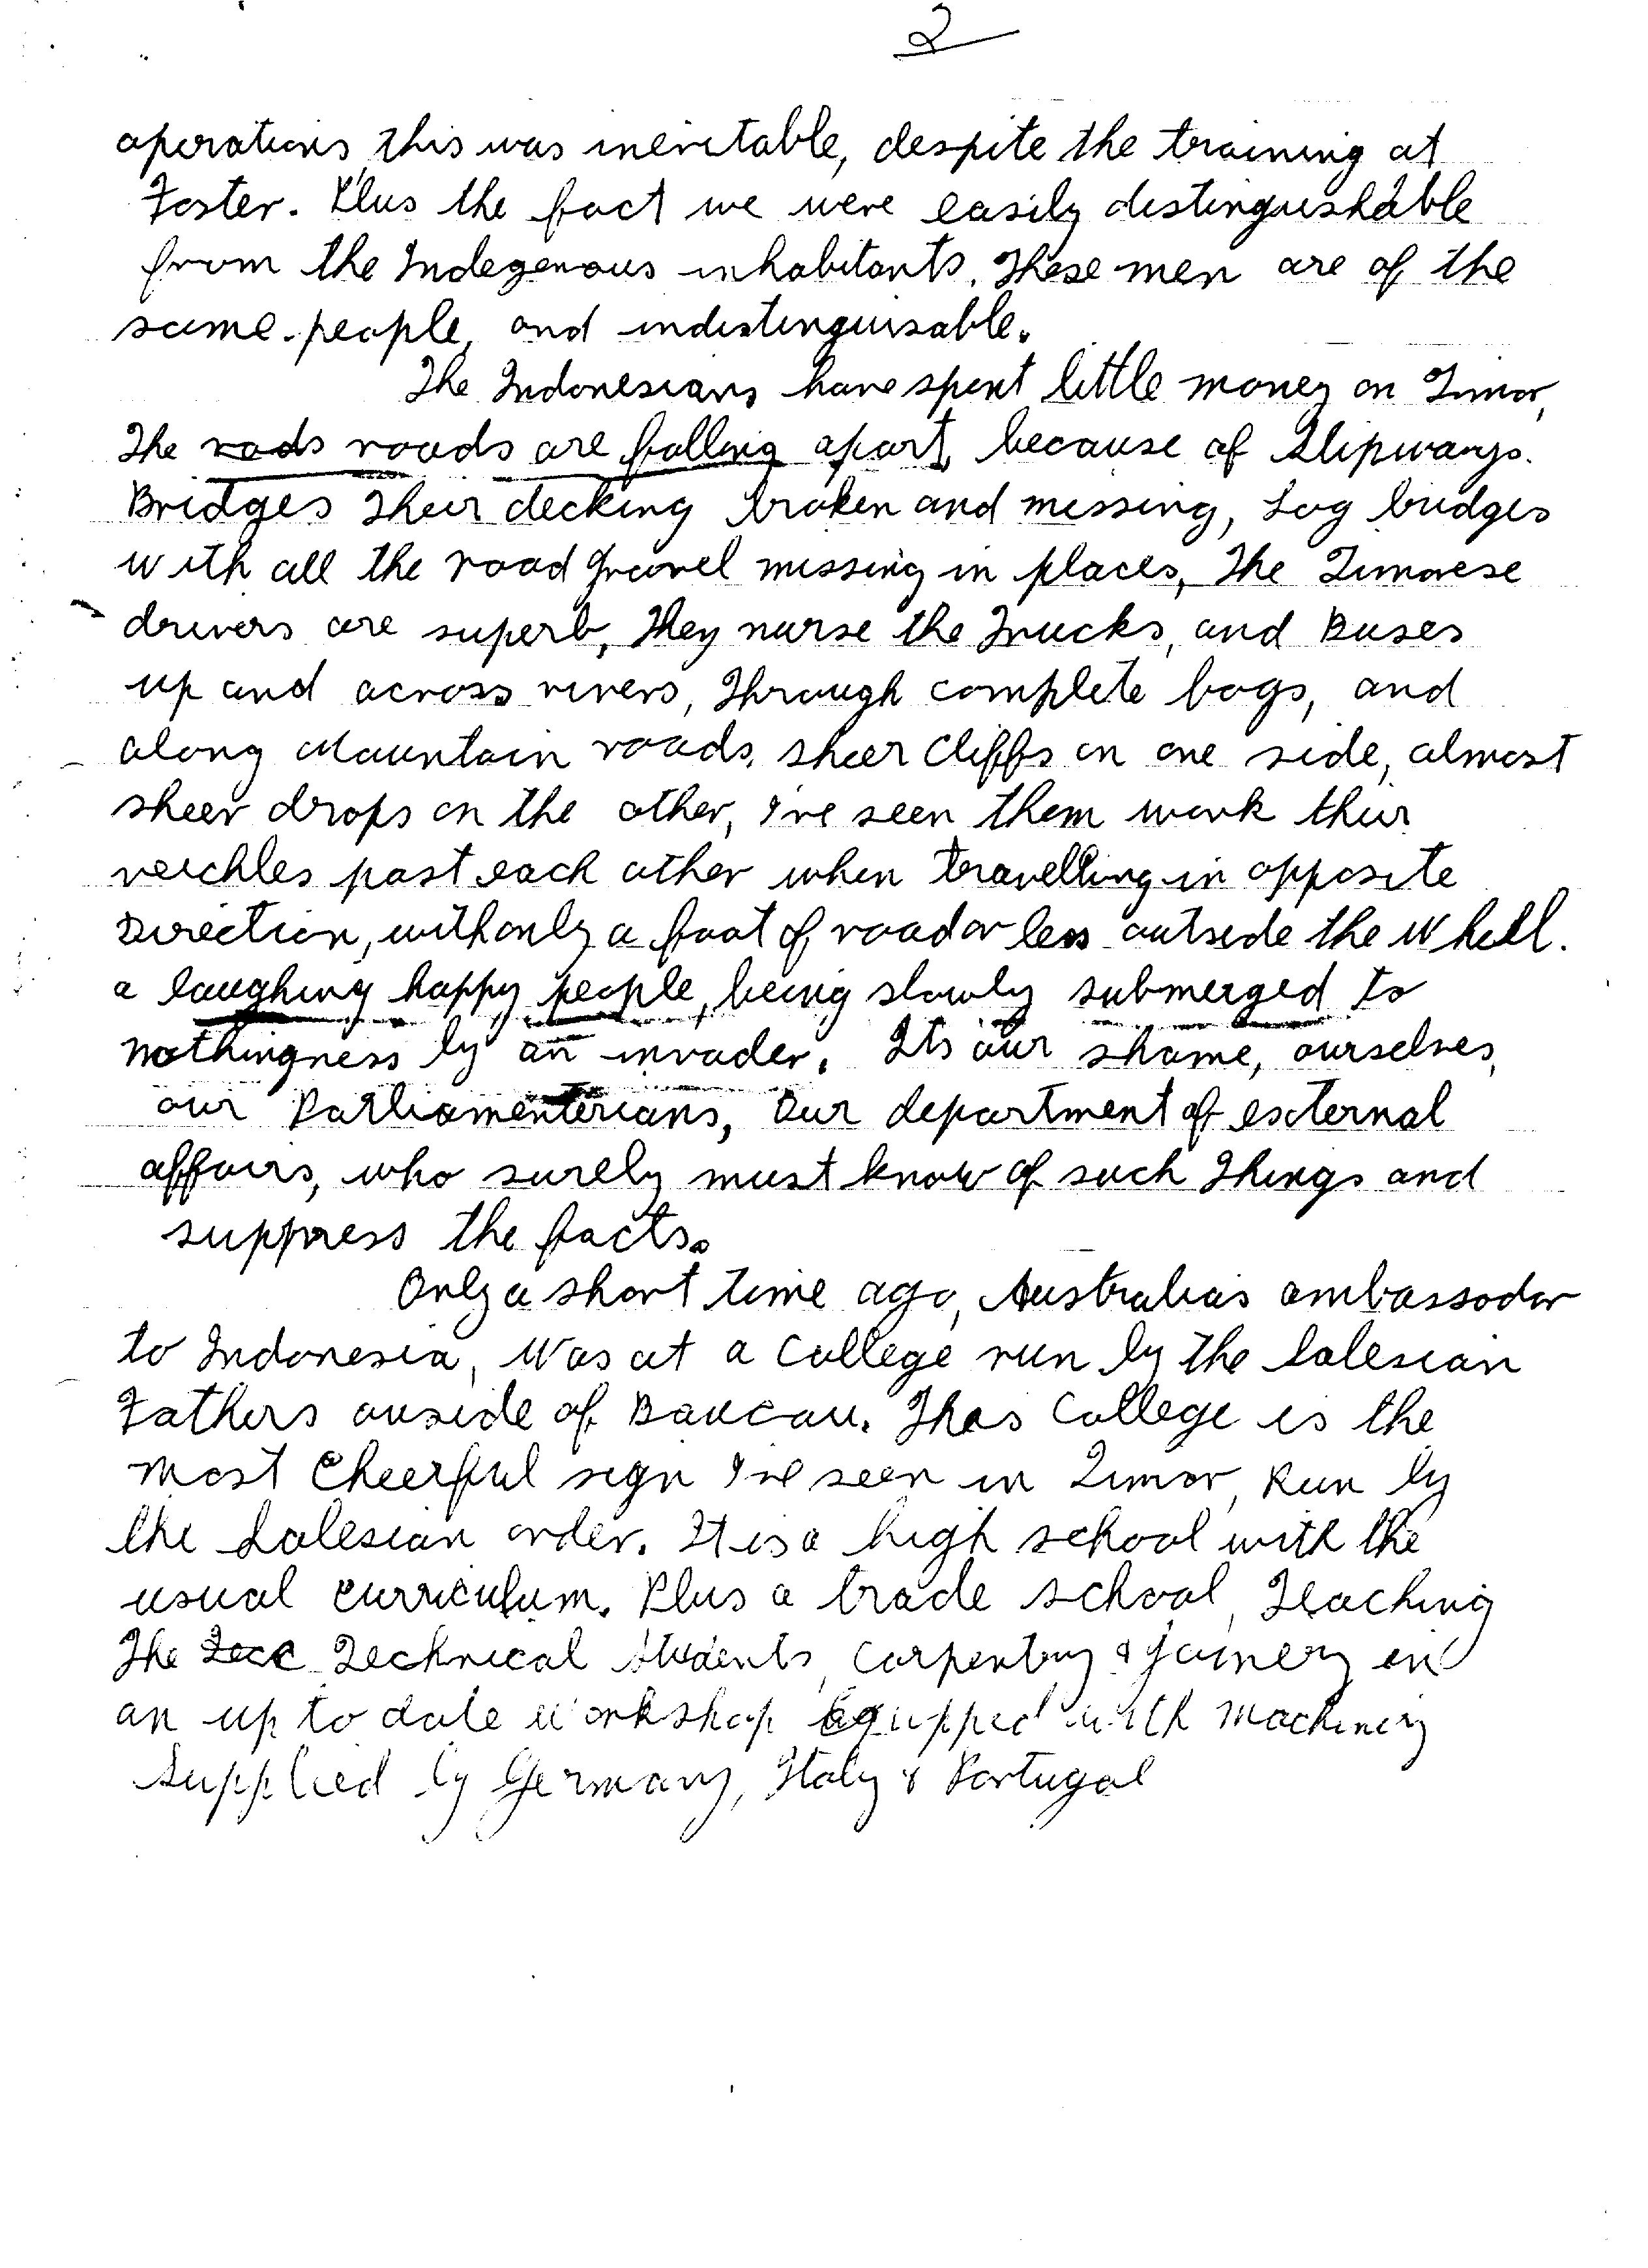 2
operations, this was inevitable, despite the training at
Foster. Plus the fact we were easily distinguishable
from the Indegenous inhabitants. These men are of the
same people, and indistinguisable.
The Indonesians have spent little money on Timor,
The rods roads are falling apart, because of Slipways.
Bridges Their decking broken and missing, Log bridges
with all the road gravel missing in places, The Timorese
drivers are superb, They nurse the Trucks, and Buses
up and across rivers, Through complete bogs, and
along Mountain roads, sheer cliffs on one side, almost
sheer drops on the other, I've seen them work their
veichles past each other when travelling in opposite
Direction, with only a foot of road or less outside the Wheel.
a laughing happy people, being slowly submerged to
nothingness by an invader. Its our shame, ourselves,
our Parliamenterians, Our department of external
affairs, who surely must know of such Things and
suppress the facts.
Only a short time ago, Australias ambassador
to Indonesia, Was at a College run by The Salesian
Fathers ouside of Baucau. This College is the
most Cheerful sign I've seen in Timor, Run by
the Salesian order. It is a high school with the
usual curriculum. Plus a trade school, Teaching
The Tecc Technical Students, Carpentry & joinery in
an up to date workshop Equipped with machinery
Supplied by Germany, Italy & Portugal